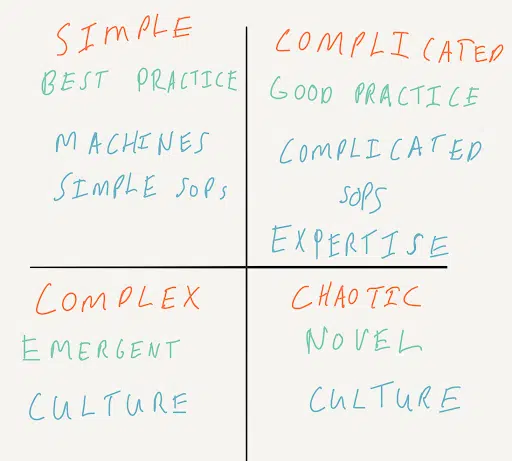 SIMPLE
BEST PRACTICE
MACHINES
SIMPLE SOPs
COMPLICATED
GOOD PRACTICE
COMPLICATED
SOPS
EXPERTISE
COMPLEX
EMERGENT
CULTURE
CHAOTIC
NOVEL
CULTURE